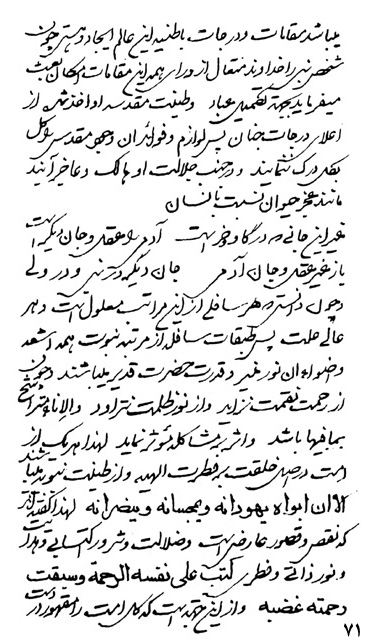 میباشد مقامات و درجات باطنیه این عالم ایجاد و هستی چون
شخص نبی را خداوند متعال از ورای همه این مقامات امکان بعثت
میفرماید بجهة تکمیل عباد و طینت مقدسه او اخذ شده از
اعلای درجات جنان پس لوازم و فوائد آن وجود مقدس را کل
بکلی درک ننمایند و در جنب جلالت او هالک و عاجز آیند
مانند عجز حیوان نسبت بانسان
غیر این جانی که در گاو و خر است آدمی را عقل و جان دیگر است
باز غیر عقل و جان آدمی جان دیگر در نبی و در ولی
و چون دانستی هر سافلی از این مراتب معلول است و هر
عالی علت پس طبقات سافله از مرتبه نبوت همه اشعه
و اضواء آن نور غیر و قدرت حضرت قدیر میباشند و چون
از رحمت نقمت نزاید و از نور ظلمت نتراود والاناء یترشح
بمافیها باشد و اثر بر مشاکله مؤثر نماید لهذا هر یک از
امت در اصل خلقت بر فطرت الهیه و از طینت نبویه میباشند
الا ان ابواه یهودانه و یمجسانه و ینصرانه لهذا گفته‌اند
که نقص و قصور عارضی است و ضلالت و شرور اکتسابی و هدایت
و نور ذاتی و فطری کتب علی نفسه الرحمة وسبقت
رحمته غضبه و از این جهت است که کل امت را مقهور در
۷۱